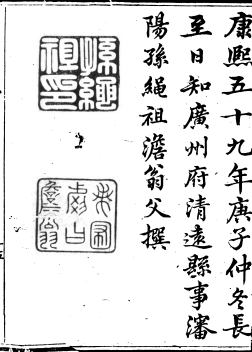 康熙五十九年庚子仲冬長
至日知廣州府清遠縣事瀋
陽孫繩祖澹翁父撰
孫繩祖印